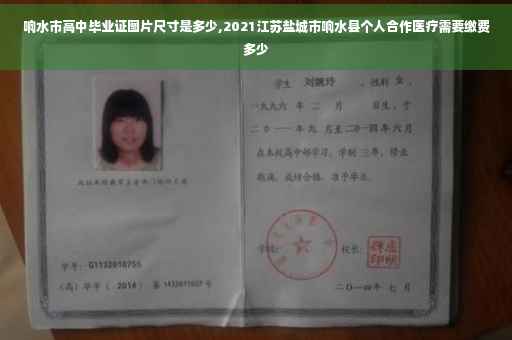 响水市高中毕业证图片尺寸是多少,2021江苏盐城市响水县个人合作医疗需要缴费
多少
学生 刘婉玲 ，性别 女 ，
一九九六 年 二 月 日生，于
二〇一一 年 九 月至 二〇一四 年 六 月
在本校高中部学习，学制 三 年，修业
期满，成绩合格，准予毕业。
学号： G1132010755
学校： 校长：
（高）毕字（ 2014 ）第 1432011027 号
二〇一四年 七 月